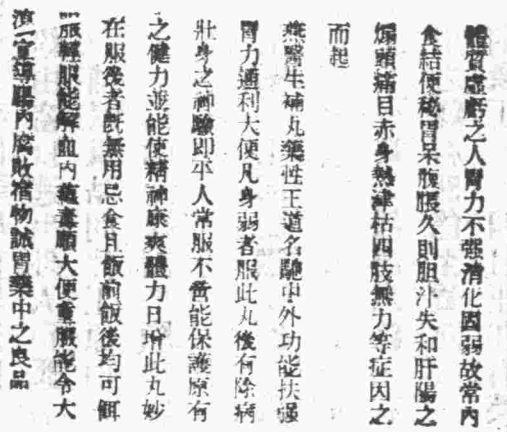 體質虛虧之人胃力不强消化因弱故常內
食結便秘胃呆腹脹久則胆汁失和肝陽之
煽頭痛目赤身熱津枯四肢無力等症因之
而起
燕醫生補丸藥性王道名馳中外功能扶强
胃力通利大便凡身弱者服此丸後有除病
壯身之神驗即平人常服不啻能保護原有
之健力並能使精神康爽體力日增此丸妙
在服後者既無用忌食且飯前飯後均可餌
服輕服能解血內蘊毒順大便重服能令大
滌腸內腐敗宿物誠胃藥中之良品